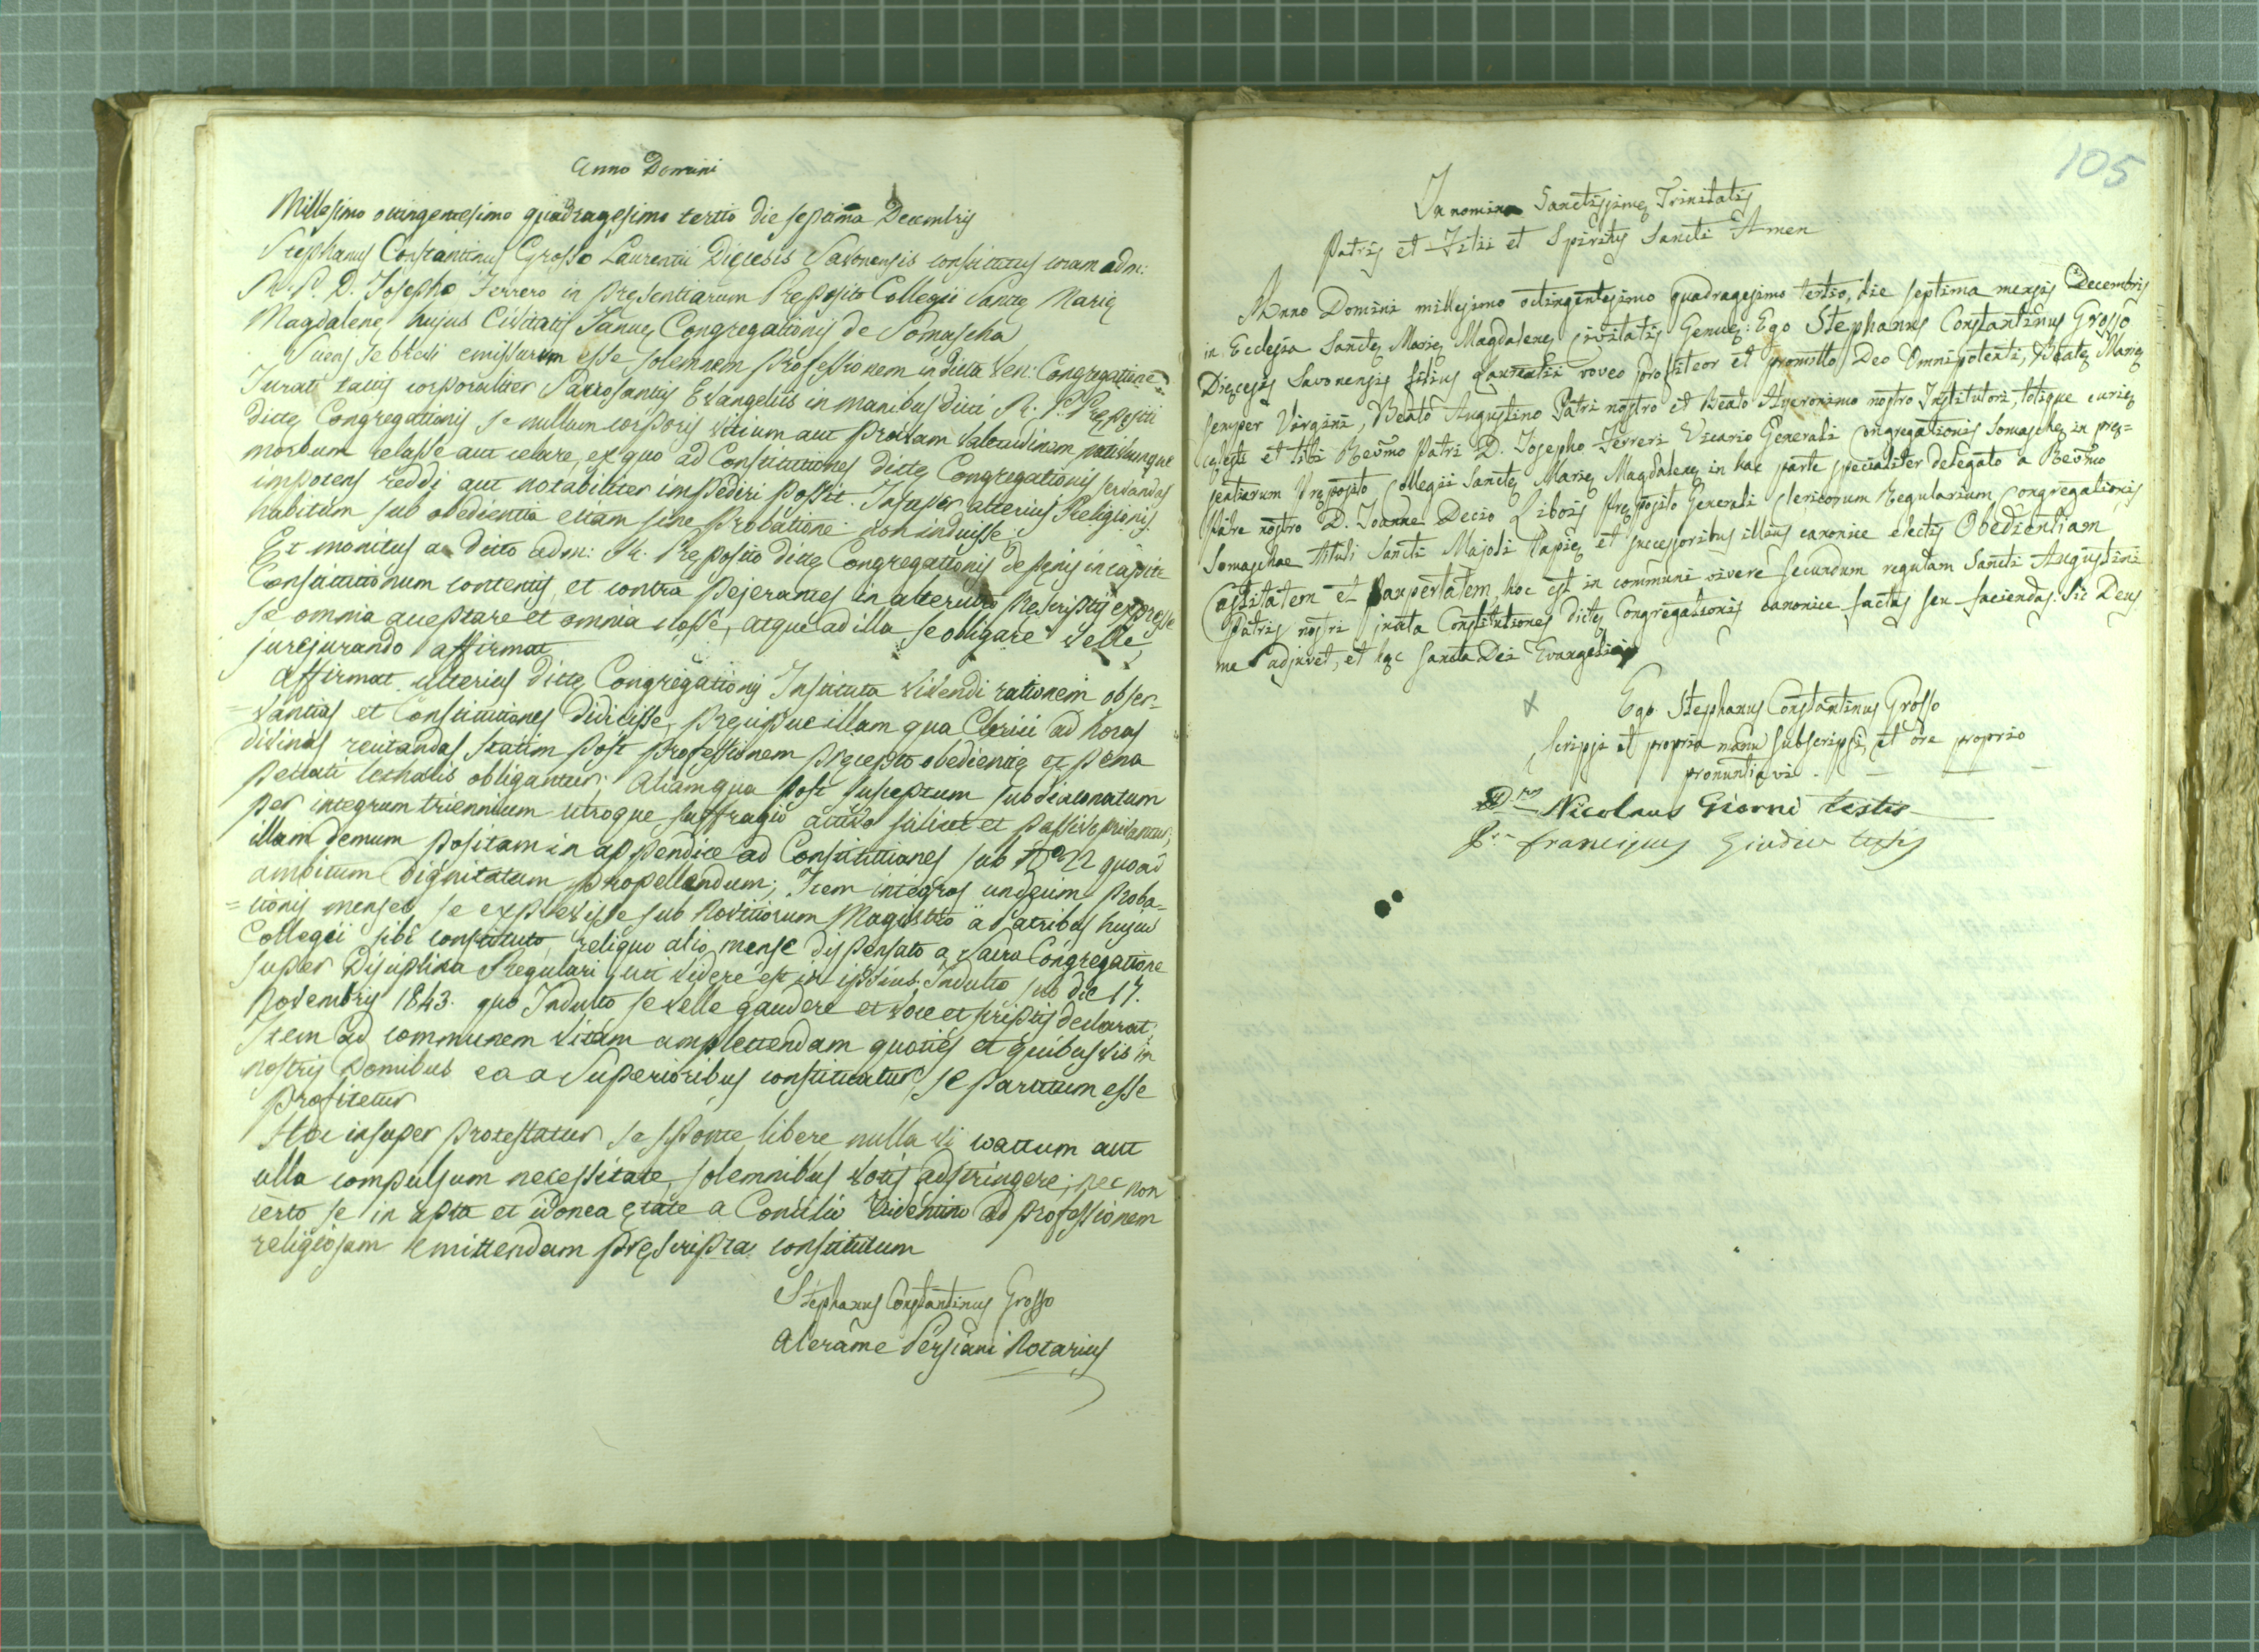 Anno Domini
Millesimo octingentesimo quadragesimo tertio die septima Decembris
Stephanus Constantinus Grosso Laurentii Dięcesis Savonensis constitutus coram adm:
R. P. D. Josepho Ferrero in pręsentiarum Pręposito Collegii Sanctę Marię
Magdalenę hujus Civitatis Januę Congregationis de Somascha
Sciens se brevi emissurum esse solemnem professionem in dicta Ven: Congregatione
Juravit tactis corporaliter Sacrosanctis Evangeliis in manibus dicti R. P. Prępositi
dictę Congregationis se nullum corporis vitium aut pravam valetudinem, vetitumque
morbum celasse aut celare, ex quo ad Constitutiones dictę Congregationis servandas
impotens reddi aut notabiliter impediri possit. Insuper alterius Religionis
habitum sub obedientia etiam sine probatione non induisse.
Et monitus a dicto adm: R. Pręposito dictę Congregationis de pęnis in capite
Constitutionum contentis, et contra pejerantes in alterutro pręscriptis expresse
se omnia acceptare et omnia nosse, atque ad illa se obligare velle,
jurejurando affirmat.
Affirmat ulterius dictę Congregationis Instituta vivendi rationem obser-
=vantias et Constitutiones didicisse, pręcipue illam qua Clerici ad horas
divinas recitandas statim post professionem pręcepto obedientię et pęna
peccati lethalis obligantur; Aliam qua post susceptum subdiaconatum
per integrum triennium utroque suffragio activo scilicet et passivo privantur;
illam demum positam in appendice ad Constitutiones sub N.º 22 quoad
ambitum dignitatum propellendum; Item integros undecim proba-
=tionis menses se explevisse sub Novitiorum Magistro a Patribus hujus
Collegii sibi constituto, reliquo alio mense dispensato a Sacra Congregatione
super Disciplina Regulari, uti videre est in ipsius Indulto sub die 17.
Novembris 1843. quo Indulto se velle gaudere et voce et scriptis declarat;
Item ad communem vitam amplectendam quoties et quibusvis in
nostris Domibus ea a Superioribus constituatur, se paratum esse
profitetur
Hoc insuper protestatur se sponte libere nulla vi coactum aut
ulla compulsum necessitate, solemnibus votis adstringere; nec non
certo se in apta et idonea ętate a Concilio Tridentino ad professionem
religiosam emittendam pręscripta constitutum
Stephanus Constantinus Grosso
Alerame Persiani Notarius
105
In nomine Sanctissimę Trinitatis
Patris et Filii et Spiritus Sancti Amen
Anno Domini millesimo octingentesimo quadragesimo tertio, die septima mensis Decembris
in Ecclesia Sanctę Marię Magdalenę civitatis Genuę: Ego Stephanus Constantinus Grosso
Dięcesis Savonensis filius Laurentii voveo profiteor et promitto Deo Omnipotenti, Beatę Marię
semper Virgini, Beato Augustino Patri nostro et Beato Hyeronimo nostro Institutori, totique curię
cęlesti et tibi Revm̃o Patri D. Josepho Ferreri Vicario Generali Congregationis Somaschę in pręs=
sentiarum Pręposito Collegii Sanctę Marię Magdalenę in hac parte specialiter delegato a Revm̃o
Patre nostro D. Joanne Decio Libois Pręposito Generali Clericorum Regularium Congregationis
Somaschae tituli Sancti Majoli Papię et successoribus illius canonice electis Obedientiam
Castitatem et Paupertatem, hoc est in communi vivere secundum regulam Sancti Augustini
Patris nostri juxta Constitutiones dictę Congregationis canonice factas seu faciendas. Sic Deus
me adjuvet, et hęc sancta Dei Evangelia
x Ego Stephanus Constantinus Grosso
scripsi et propria manu subscripsi, et ore proprio
pronuntiavi. — — —
Nicolaus Giorni testis
franciscus Giudice testis